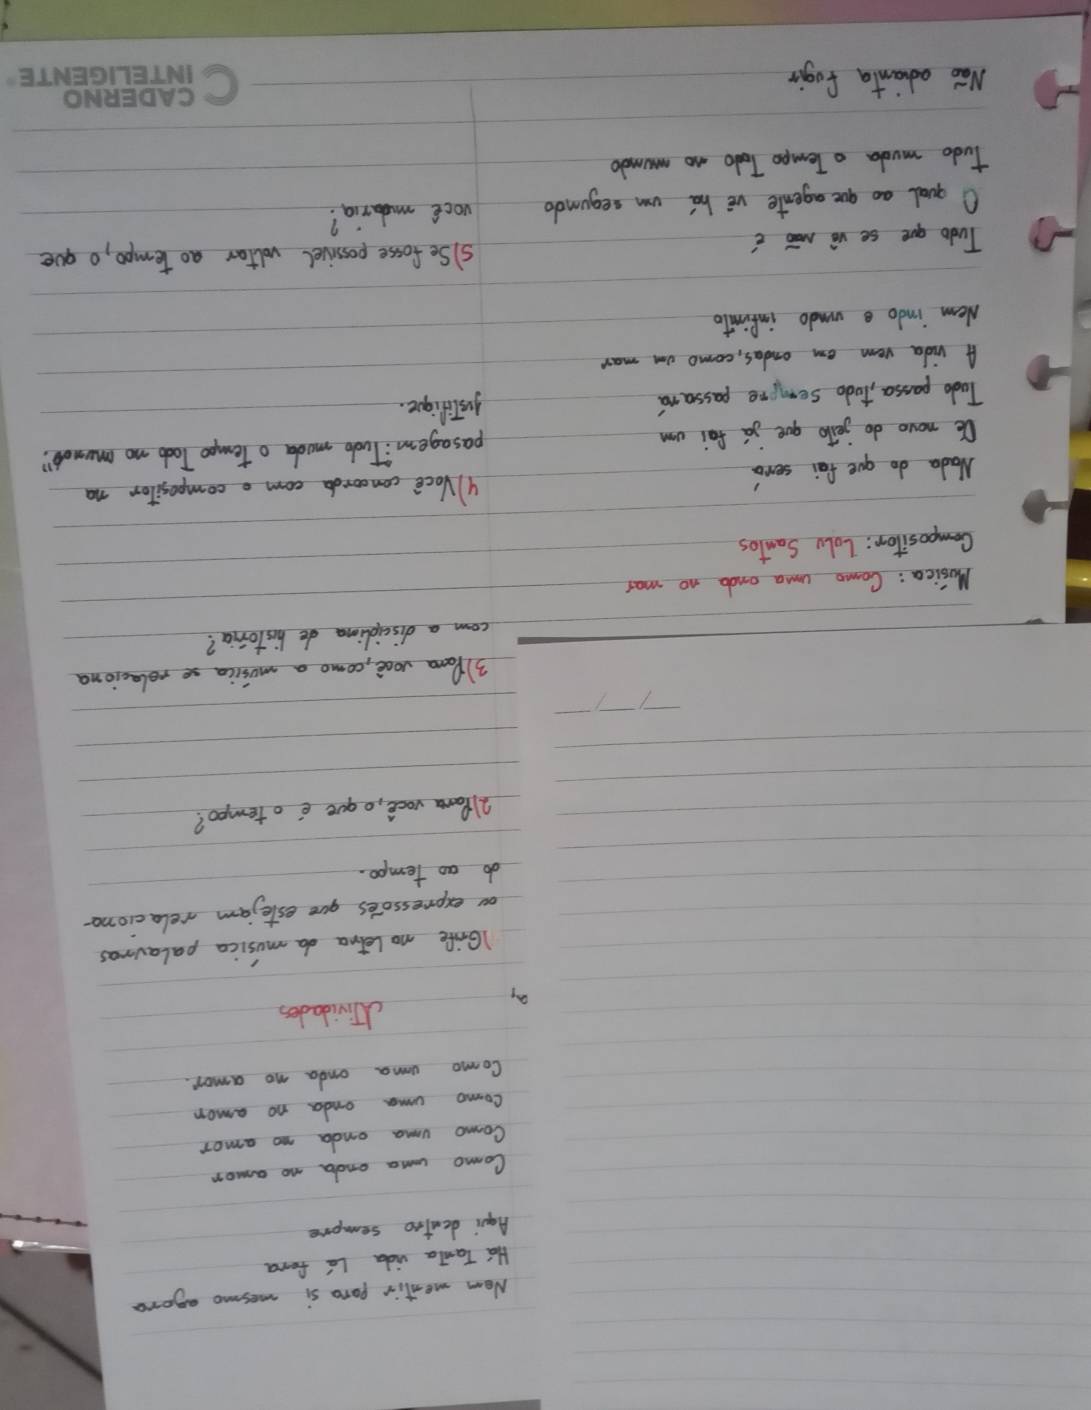 Música: Como uma onda no mar
Compositor: Lulu Santos
Nada do que foi será
De novo do jeito que já foi um
Tudo passa, tudo sempre passará
A vida vem em ondas, como um mar
Nem indo e vindo infinito
Tudo que se vê não é
O qual ao que agente vê há um segundo
Tudo muda o tempo Todo no mundo
Não adianta fugir
Nem mentir para si mesmo agora
Há Tanta vida Lá fora
Aqui dentro sempre
Como uma onda no amor
Como uma onda no amor
Como uma onda no amor
Como uma onda no amor.
Atividades
1)Grife na letra da música palavras
ou expressoẽs que estejam relaciona-
do ao tempo.
2)Para você, o que é o tempo?
3)Para você, como a música se relaciona
com a disciplina de história?
4)Você concorda com o compositor na
pasagem: Tudo muda o tempo Todo no mundo".
Justifique.
5)Se fosse possível voltar ao tempo, o que
você mudaria?
CADERNO
INTELIGENTE®